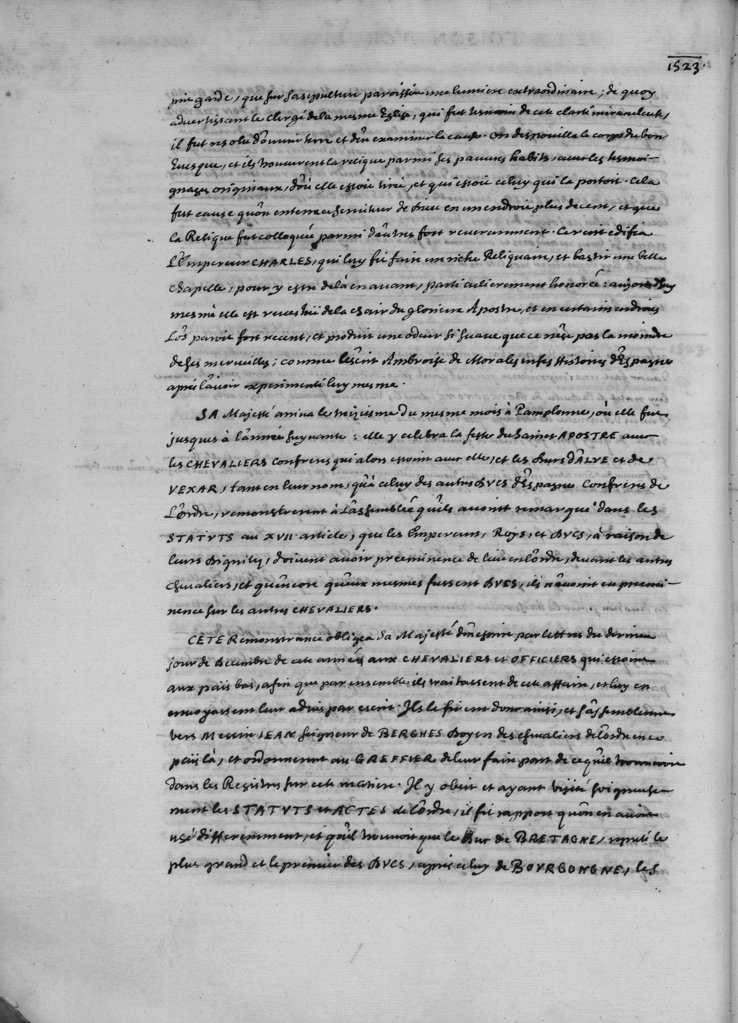 1523.
prit garde, que sur sa sepulture paroissoit une lumiere extraordinaire; de quoy
advertissant le Clergé de la mesme Eglise, qui fut tesmoin de cete clarté miraculeuse,
il fut resolu d'ouvrir terre et d'en examiner la cause. On despouille le corps du bon
Evesque, et ils trouverent la relique parmi ses pauvres habits, avec les tesmoi-
gnages originaux, d'où elle estoit tirée, et qui estoit celuy qui la portoit. Cela
fut cause qu'on enterra ce serviteur de Dieu en un endroit plus decent, et que
la Relique fut colloquée parmi d'autres fort reveremment. Ce recit edifia
L'Empereur CHARLES, qui luy fit faire un riche Reliquaire, et bastir une belle
Chapelle, pour y estre delà en avant, particulierement honorée: aujourd'huy
mesme elle est revestüe de la chair du glorieux Apostre, et en certains endroits
L'os paroit fort recent, et produit une odeur si suave que ce n'est pas la moindre
de ses merveilles; comme l'escrit Ambroise de Morales en ses Histoires d'Espagne
apres l'avoir experimenté luy mesme.
SA Majesté arriva le du mesme mois à Pamplonne, où elle fut
jusques à l'année suyvante: elle y celebra la feste du Sainct APOSTRE avec
les CHEVALIERS Confreres qui alors estoient avec elle, et les Ducs D'ALVE et de
VEXAR, tant en leur nom, qu'à celuy des autres DVCS d'Espagne Confreres de
L'ordre, remonstrerent à L'assemblée qu'ils avoient remarqué dans les
STATVTS au XVII. article, que les Empereurs, Roys, et DVCS, à raison de
leurs Dignitez, doivent avoir preeminence de lieu en l'ordre, devant les autres
chevaliers, et qu'encore qu'eux mesmes fussent DVCS, ils n'avoient eu preemi-
nence sur les autres CHEVALIERS.
CETE Remonstrance obligea Sa Majesté d'escrire par lettres du dernier
jour de Decembre de cete année aux CHEVALIERS et OFFICIERS qui estoient
aux païs bas, afin que par ensemble ils traitassent de cete affaire, et luy en
envoyassent leur advis par escrit. Ils le firent donc ainsi, et s'assemblerent
vers Messire IEAN Seigneur de BERGHES Doyen des chevaliers de l'ordre en ce
païs là, et ordonnerent au GREFFIER de leur faire part de ce qu'il trouveroit
dans les Registres sur cete matiere. Il y obeit et ayant visité soigneuse-
ment les STATVTS et ACTES de l'ordre, il fit rapport qu'on en avoit
usé differemment, et qu'il trouvoit que le Duc de BRETAGNE, reputé le
plus grand et le premier des DVCS, apres celuy de BOVRGONGNE, les